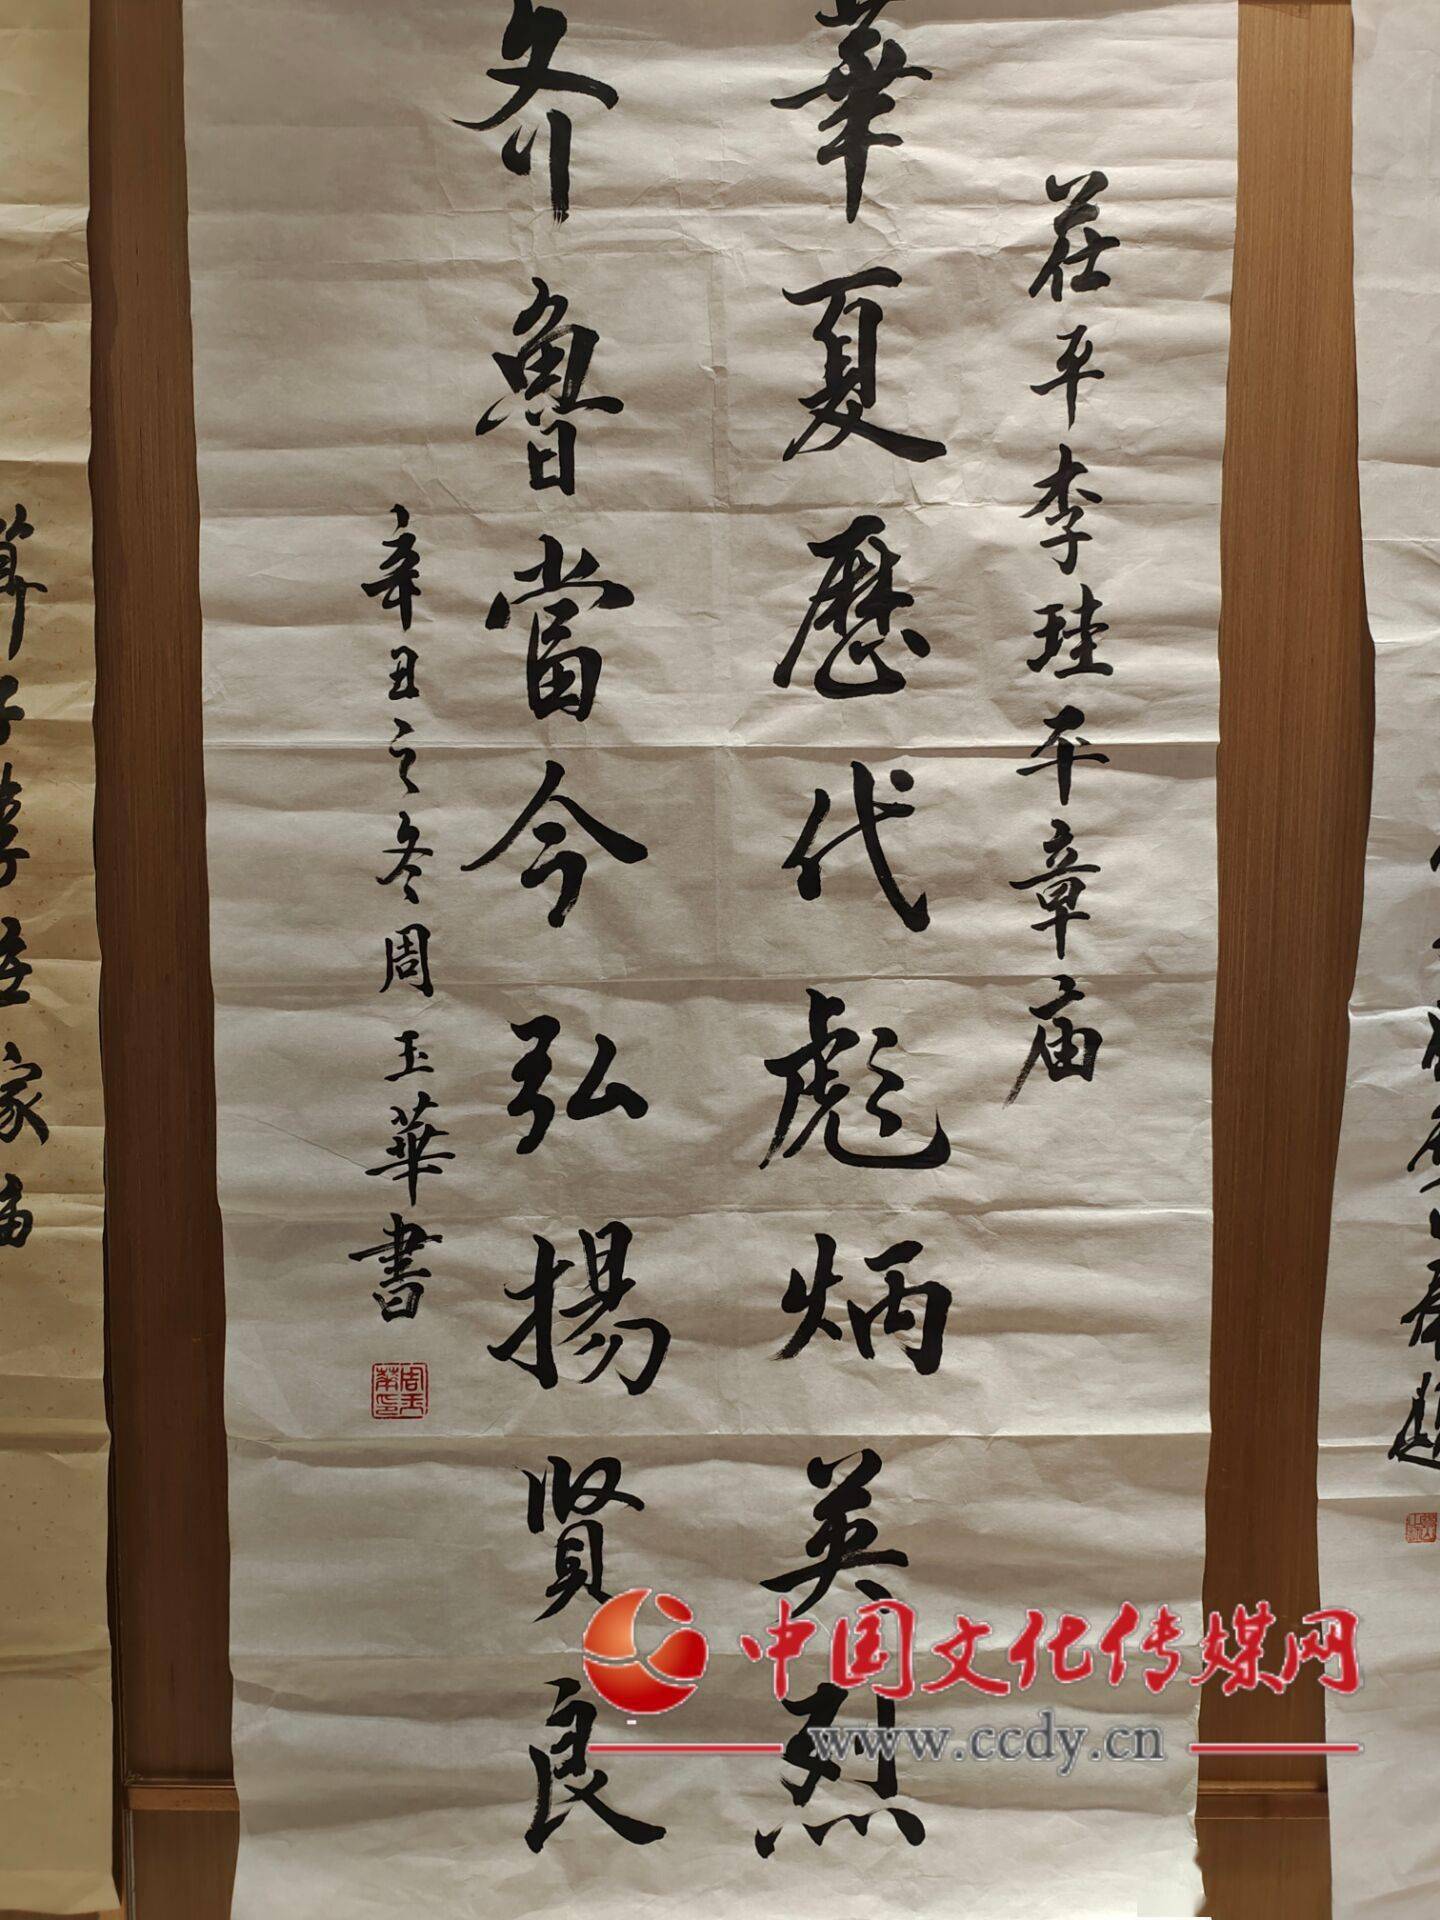 茌平李珪平章庙
華夏歷代彪炳英烈
齐魯當今弘揚賢良
辛丑之冬周玉華書
周玉華印
中国文化传媒网
www.ccdy.cn